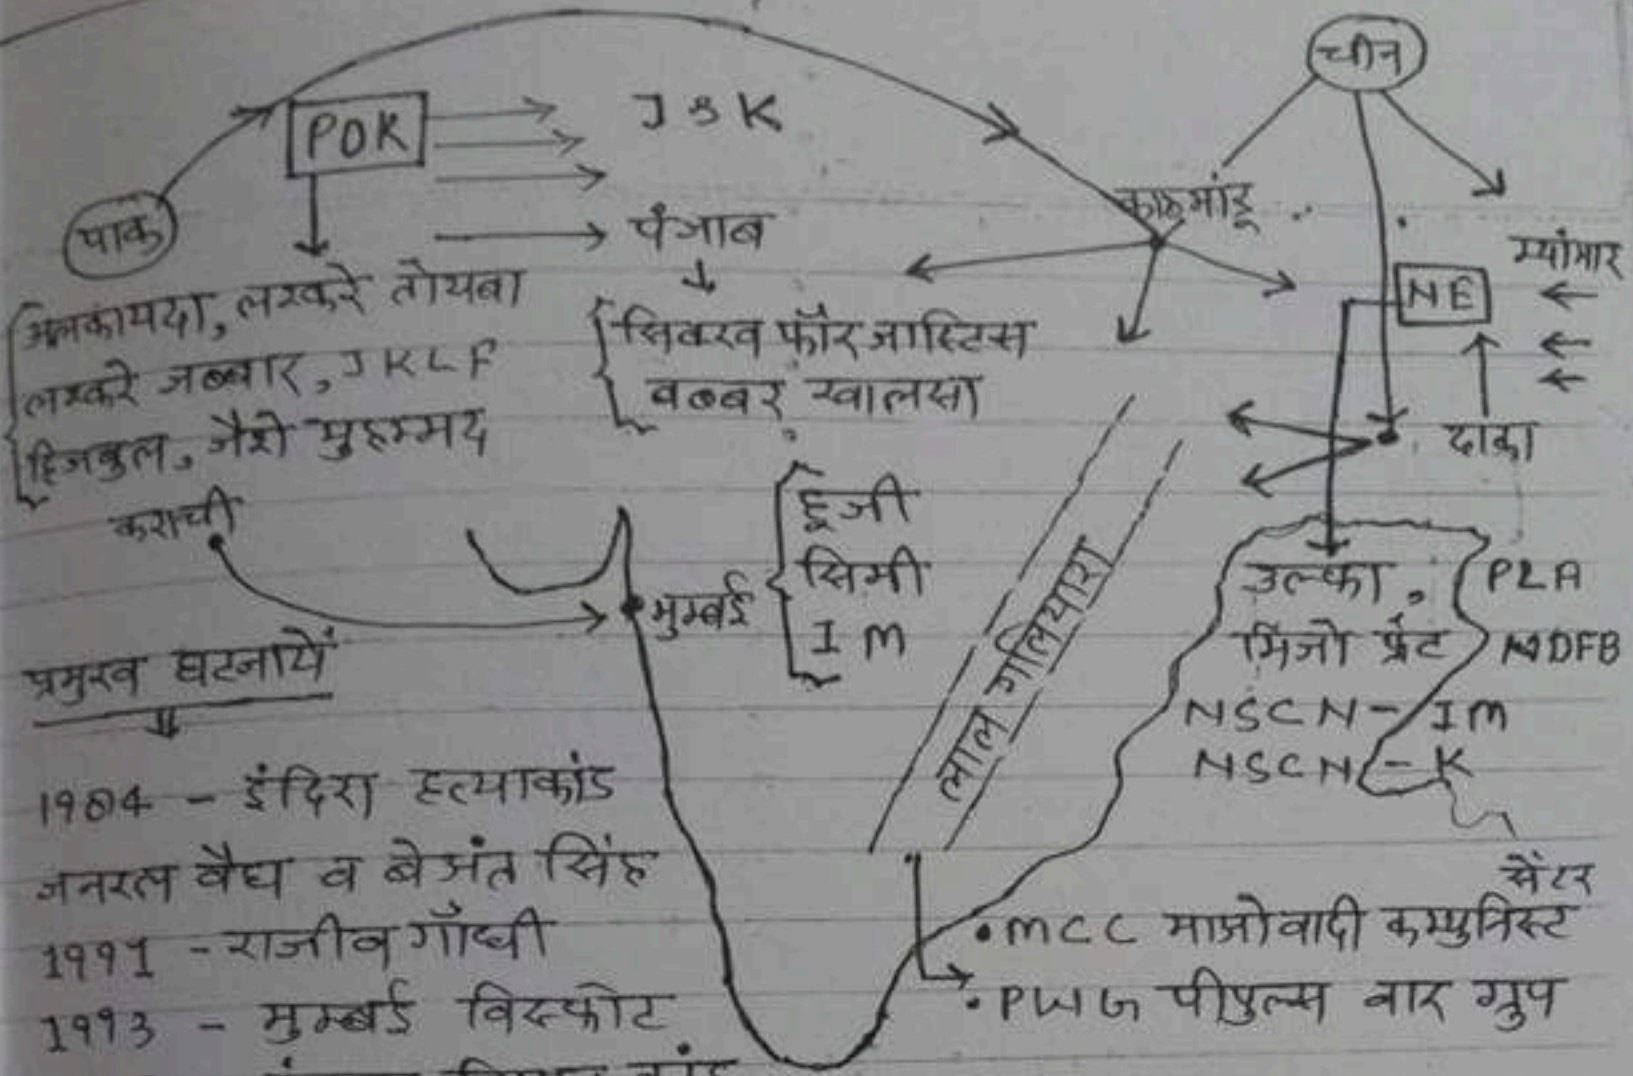 चीन
POK
J & K
पाक
काठमांडू
पंजाब
म्यांमार
NE
अलकायदा, लश्करे तोयबा
लश्करे जब्बार, JKLF
हिजबुल, जैशे मुहम्मद
सिक्ख फॉर जास्टिस
बब्बर खालसा
ढाका
कराची
मुम्बई
हूजी
सिमी
IM
लाल गलियारा
उल्फा,
मिजो फ्रंट
NSCN - IM
NSCN - K
PLA
NDFB
प्रमुख घटनायें
1984 - इंदिरा हत्याकांड
जनरल वैद्य व बेअंत सिंह
1991 - राजीव गाँधी
1993 - मुम्बई विस्फोट
सेंटर
• MCC माओवादी कम्युनिस्ट
• PWG पीपुल्स वार ग्रुप